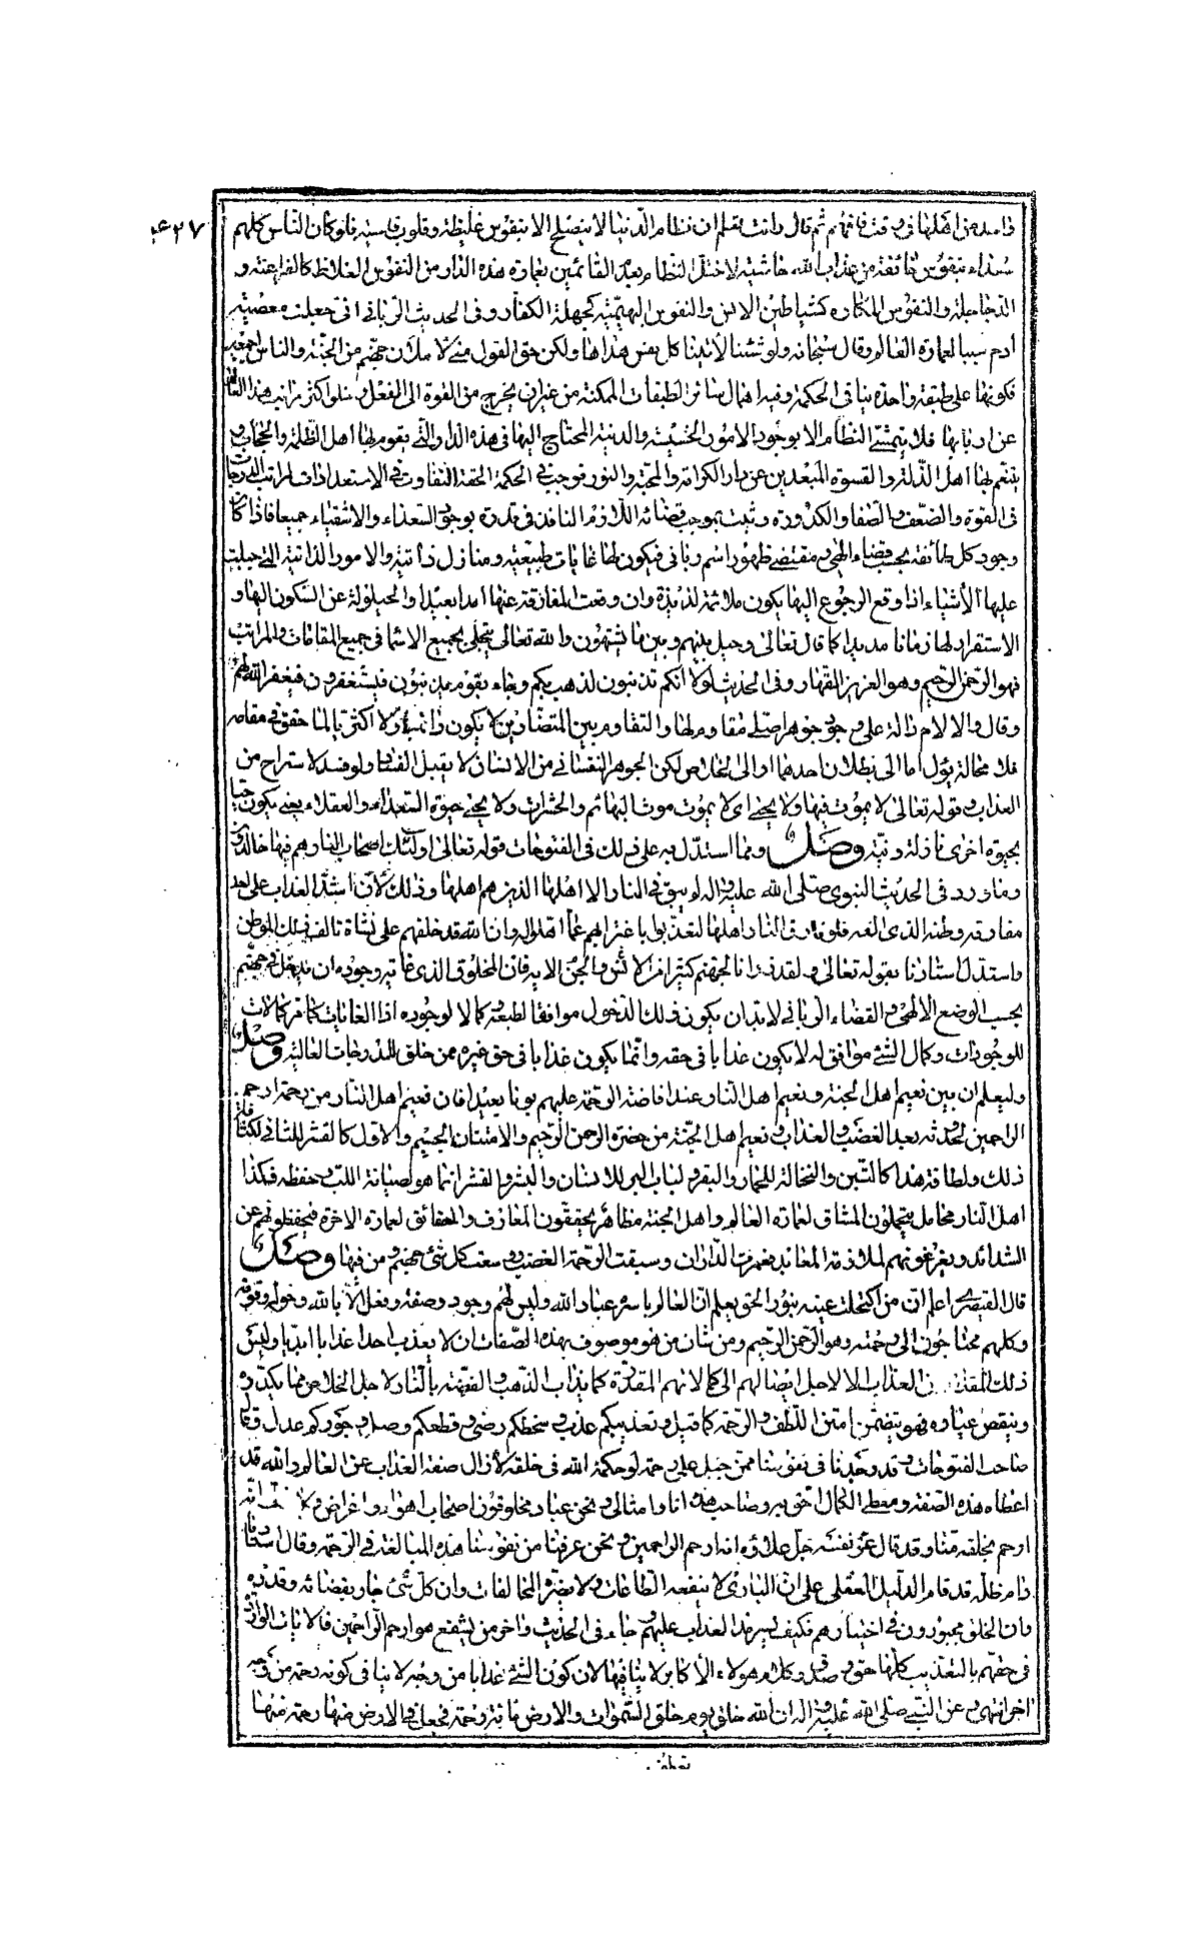 ۴۲۷
فافهم ثم قال وانت تعلم ان نظام الدنيا لا ينصلح الا بنفوس غليظة وقلوب قاسية فلو كان الناس كلهم
سعداء بنفوس خائفة من عذاب الله خاشية لاختل النظام بعدم القائمين بعمارة هذه الدار من النفوس الغلاظ كالفراعنة و
الدجاجلة والنفوس المكارة كشياطين الانس والنفوس البهيمية كجهلة الكفار وفي الحديث الرباني اني جعلت معصية
ادم سببا لعمارة العالم وقال سبحانه ولو شئنا لاتينا كل نفس هداها ولكن حق القول مني لاملان جهنم من الجنة والناس اجمعين
فكونها على طبقة واحدة ينافي الحكمة وفيه اهمال سائر الطبقات الممكنة من غير ان يخرج من القوة الى الفعل وخلو اكثر مراتب هذا العالم
عن اربابها فلا يتمشى النظام الا بوجود الامور الخسيسة والدنية المحتاج اليها في هذه الدار التي يقوم بها اهل الظلمة والحجاب و
يتنعم بها اهل الذلة والقسوة المبعدين عن دار الكرامة والمحبة والنور فوجب في الحكمة الحقة التفاوت في الاستعدادات لمراتب الدرجات
في القوة والضعف والصفاء والكدورة وثبت بموجب قضائه اللازم النافذ في قدره بوجود السعداء والاشقياء جميعا فاذا كان
وجود كل طائفة بحسب قضاء الهي ومقتضى ظهور اسم رباني فيكون لها غايات طبيعية ومنازل ذاتية والامور الذاتية التي جبلت
عليها الاشياء اذا وقع الرجوع اليها يكون ملائمة لذيذة وان وقعت المفارقة عنها امدا بعيدا والحيلولة عن السكون اليها و
الاستقرار لها زمانا مديدا كما قال تعالى وحيل بينهم وبين ما يشتهون والله تعالى يتجلى بجميع الاسماء في جميع المقامات والمراتب
فهو الرحمن الرحيم وهو العزيز القهار وفي الحديث لولا انكم تذنبون لذهب بكم وجاء بقوم يذنبون فيستغفرون فيغفر الله لهم
وقال والالام دالة على وجود جوهر اصلي مقاوم لها والتقاوم بين المتضادين لا يكون دائميا ولا اكثريا لما حقق في مقامه
فلا محالة يؤل اما الى بطلان احدهما او الى الخلاص لكن الجوهر النفساني من الانسان لا يقبل الفساد ولو فسد لاستراح من
العذاب وقوله تعالى لا يموت فيها ولا يحيى اي لا يموت موت البهائم والحشرات ولا يحيى حيوة السعداء والعقلاء يعني يكون حيا
بحيوة اخرى نازلة دنية وصل ومما استدل به على ذلك في الفتوحات قوله تعالى اولئك اصحاب النار هم فيها خالدون
وما ورد في الحديث النبوي صلى الله عليه واله لم يبق في النار الا اهلها الذين هم اهلها وذلك لان اشد العذاب على احد
مفارقة وطنه الذي الفه فلو فارق النار اهلها لتعذبوا باغترابهم عما اهلوا له وان الله قد خلقهم على نشاة تالف ذلك الموطن
واستدل استاذنا بقوله تعالى ولقد ذرانا لجهنم كثيرا من الانس والجن الاية فان المخلوق الذي غاية وجوده ان يدخل في جهنم
بحسب الوضع الالهي والقضاء الرباني لا بد ان يكون ذلك الدخول موافقا لطبعه كمالا لوجوده اذ الغايات كما مر كمالات
للوجودات وكمال الشئ موافق له لا يكون عذابا في حقه وانما يكون عذابا في حق غيره ممن خلق للدرجات العالية وصل
وليعلم ان بين نعيم اهل الجنة ونعيم اهل النار عند افاضة الرحمة عليهم بونا بعيدا فان نعيم اهل النار من رحمة ارحم
الراحمين لحدوثه بعد الغضب والعذاب ونعيم اهل الجنة من حضرة الرحمن الرحيم والامتنان الجسيم والاول كالقشر للثاني لكثافة
ذلك ولطافة هذا كالتبن والنخالة للحمار والبقر ولباب البر للانسان والبشر والقشر انما هو لصيانة اللب وحفظه فكذا
اهل النار محامل يتحملون المشاق لعمارة العالم واهل الجنة مظاهر يحققون المعارف والحقائق لعمارة الاخرة فيحفظونهم عن
الشدائد ويفرغونهم لملازمة المعابد فعمرت الداران وسبقت الرحمة الغضب ووسعت كل شئ جهنم ومن فيها وصل
قال القيصري اعلم ان من اكتحلت عينه بنور الحق يعلم ان العالم باسره عباد الله وليس لهم وجود وصفة وفعل الا بالله وحوله وقوته
وكلهم محتاجون الى رحمته وهو الرحمن الرحيم ومن شان من هو موصوف بهذه الصفات ان لا يعذب احدا عذابا ابديا وليس
ذلك المقدار من العذاب الا لاجل ايصالهم الى كمالاتهم المقدرة كما يذاب الذهب والفضة بالنار لاجل الخلاص مما يكدره
وينقص عياره فهو يتضمن لعين اللطف والرحمة كما قيل وتعذيبكم عذب وسخطكم رضى وقطعكم وصل وجوركم عدل وقال
صاحب الفتوحات وقد وجدنا في نفوسنا ممن جبل على رحمة لو حكمه الله في خلقه لازال صفة العذاب عن العالم والله قد
اعطاه هذه الصفة ومعطي الكمال احق به وصاحب هذه انا وامثالي ونحن عباد مخلوقون اصحاب اهواء واغراض ولا شك انه
ارحم بخلقه منا وقد قال عن نفسه جل علاؤه انه ارحم الراحمين ونحن عرفنا من نفوسنا هذه المبالغة في الرحمة وقال استاذنا
دام ظله قد قام الدليل العقلي على ان الباري لا ينفعه الطاعات ولا يضره المخالفات وان كل شئ جار بقضائه وقدره
وان الخلق مجبورون في اختيارهم فكيف يسرمد العذاب عليهم وجاء في الحديث واخر من يشفع هو ارحم الراحمين فالايات الواردة
في حقهم بالتعذيب كلها حق وصدق وكلام هؤلاء الاكابر لا ينافيها لان كون الشئ عذابا من وجه لا ينافي كونه رحمة من وجه
اخر انتهى وعن النبي صلى الله عليه واله ان الله خلق يوم خلق السموات والارض مائة رحمة فجعل في الارض منها رحمة فبها
تعطف